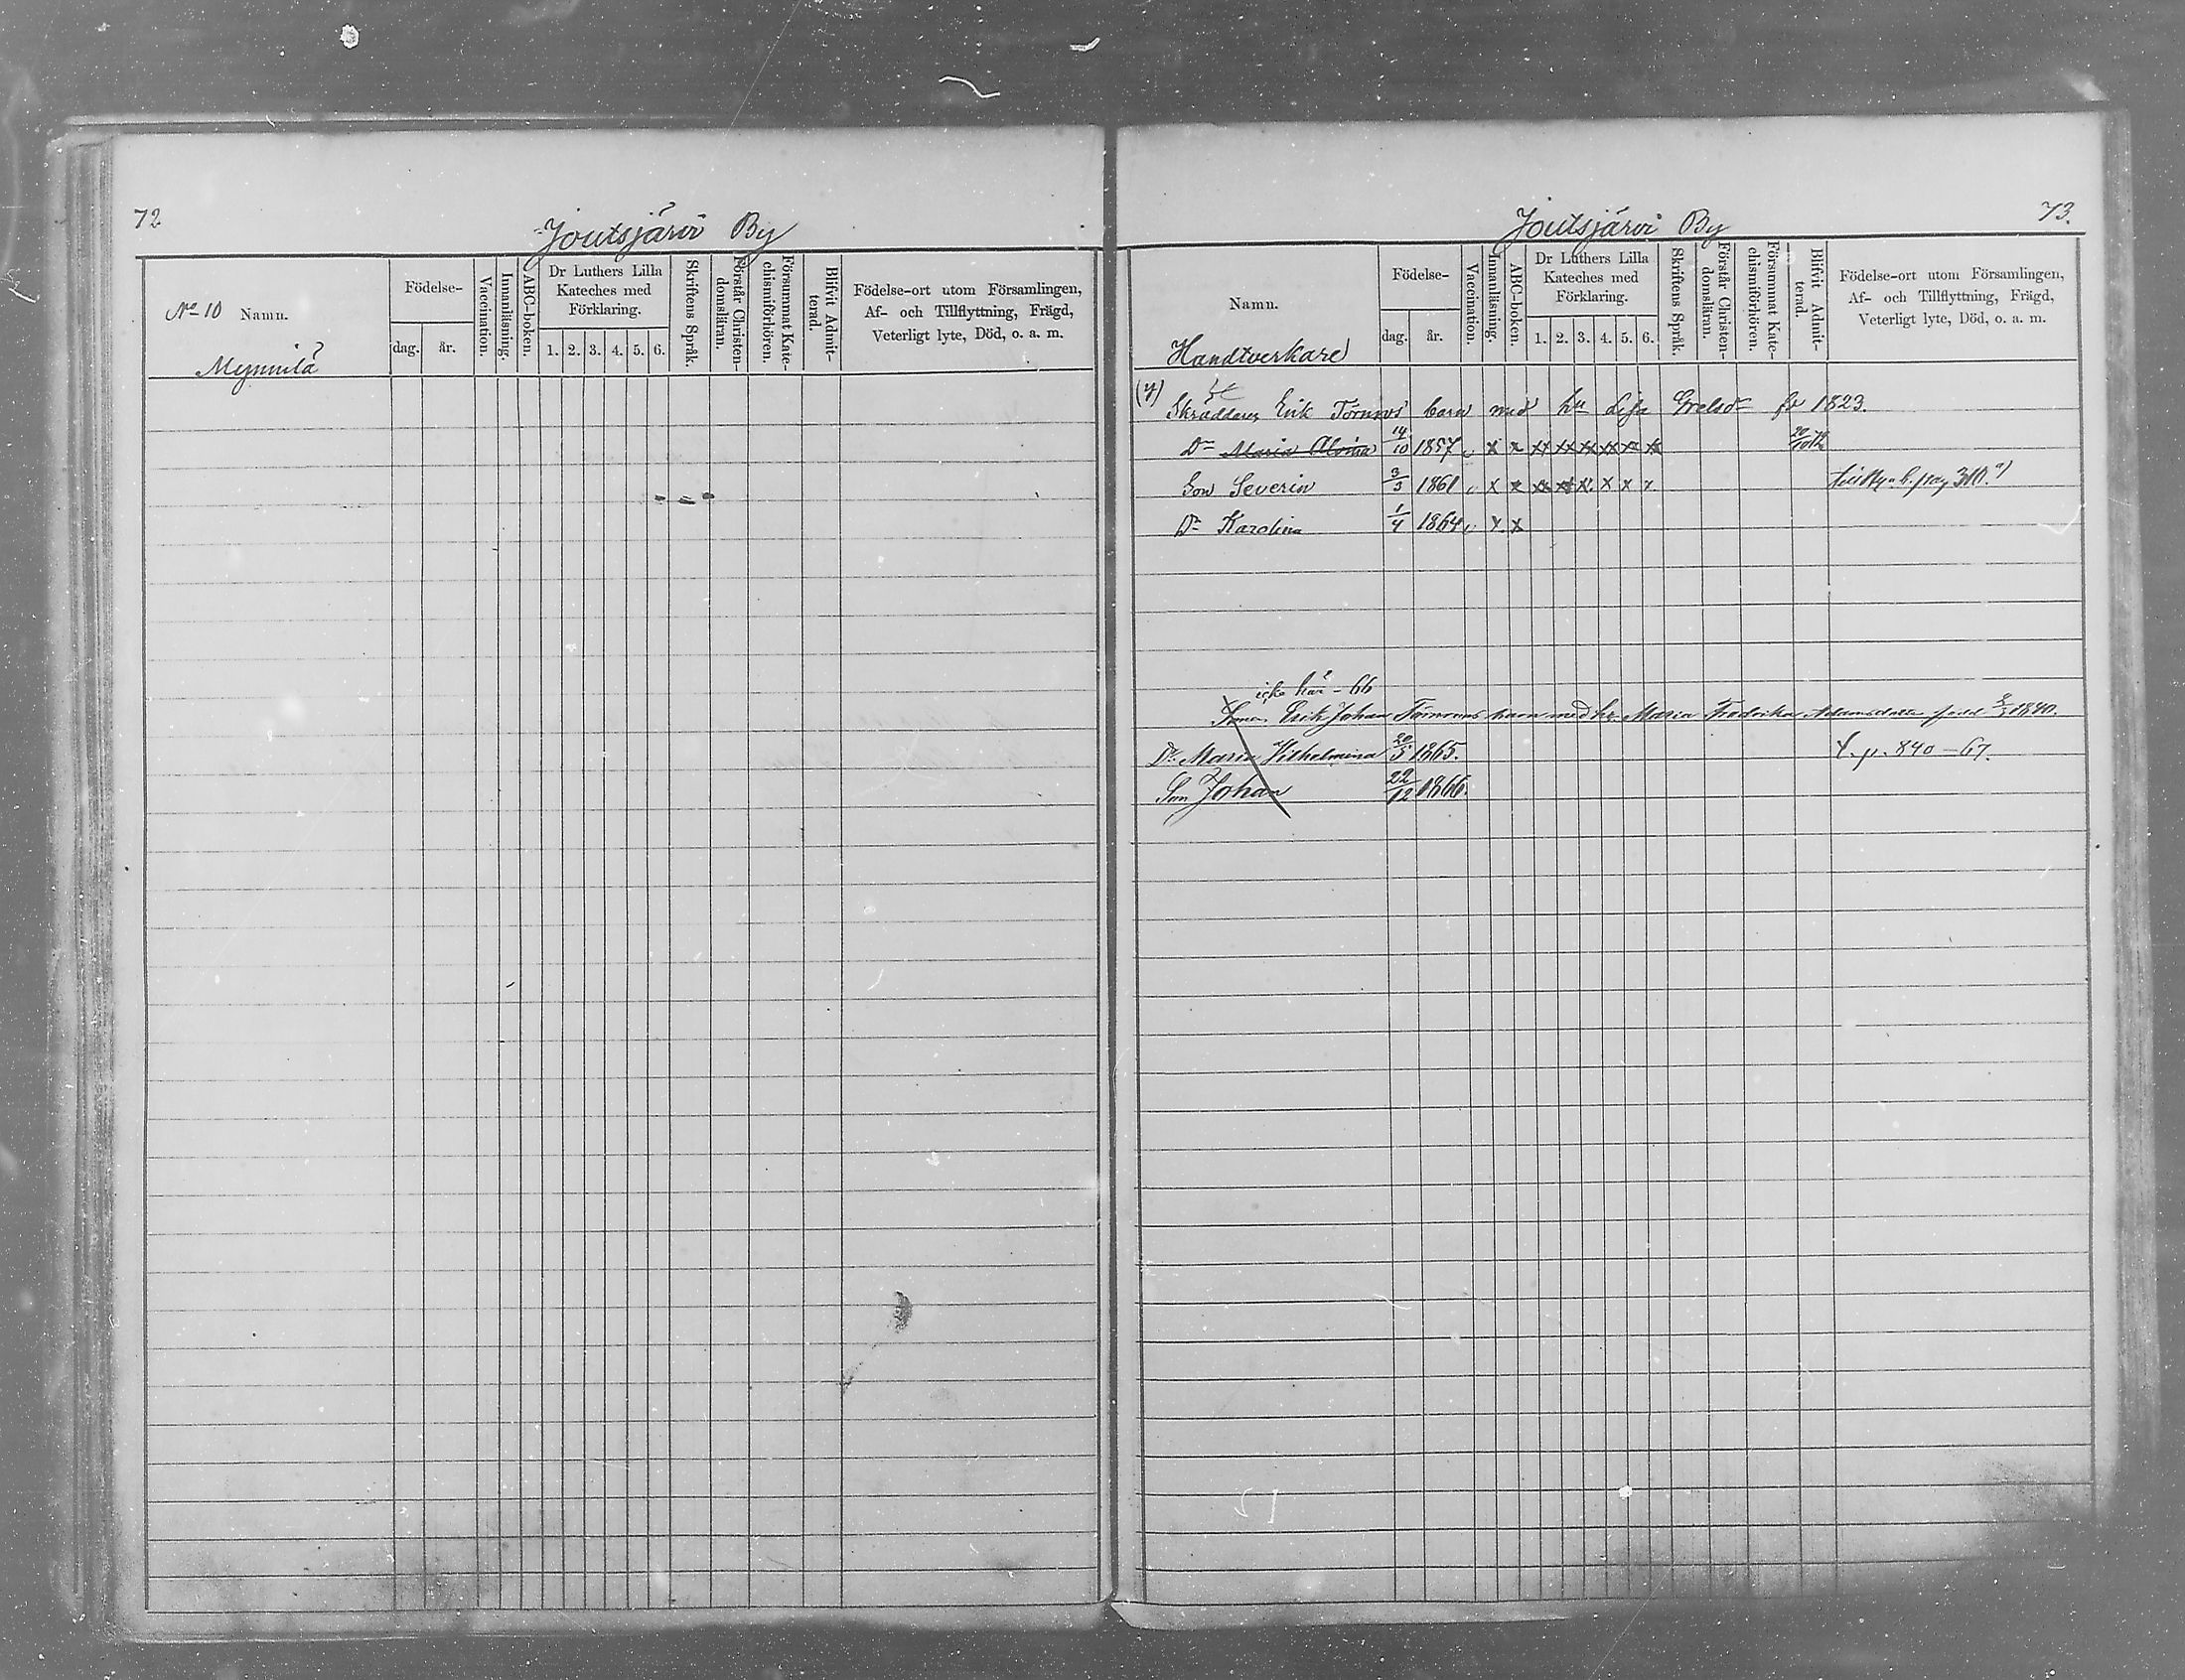 72
Joutsjärvi By
No 10 Namn.
Mynnilä
Födelse-
dag. år.
Vaccination.
Innanläsning.
ABC-boken.
Dr Luthers Lilla
Kateches med
Förklaring.
1. 2. 3. 4. 5. 6.
Skriftens Språk.
Förstår Christen-
domsläran.
Försummat Kate-
chismiförhören.
Blifvit Admit-
terad.
Födelse-ort utom Församlingen,
Af- och Tillflyttning, Frägd,
Veterligt lyte, Död, o. a. m.
73.
Joutsjärvi By
Namn.
Handtverkare
Födelse-
dag. år.
Vaccination.
Innanläsning.
ABC-boken.
Dr Luthers Lilla
Kateches med
Förklaring.
1. 2. 3. 4. 5. 6.
Skriftens Språk.
Förstår Christen-
domsläran.
Försummat Kate-
chismiförhören.
Blifvit Admit-
terad.
Födelse-ort utom Församlingen,
Af- och Tillflyttning, Frägd,
Veterligt lyte, Död, o. a. m.
Skräddaren Erik Törnroos barn med hu Lisa Grelsdr fö 1823.
Dr Maria 14/10 1857 x x xx xx xx xx x x
Son Severin 3/3 1861 x x xx xx x x x x pag 310.
Dr Karolina 1/4 1864 x x
icke här - 66
Erik Johan Törnroos barn med hu Maria Fredrika Adamsdotter född 1840.
Dr Maria Vilhelmina 20/5 1865. p. 840 - 67.
Son Johan 22/12 1866.